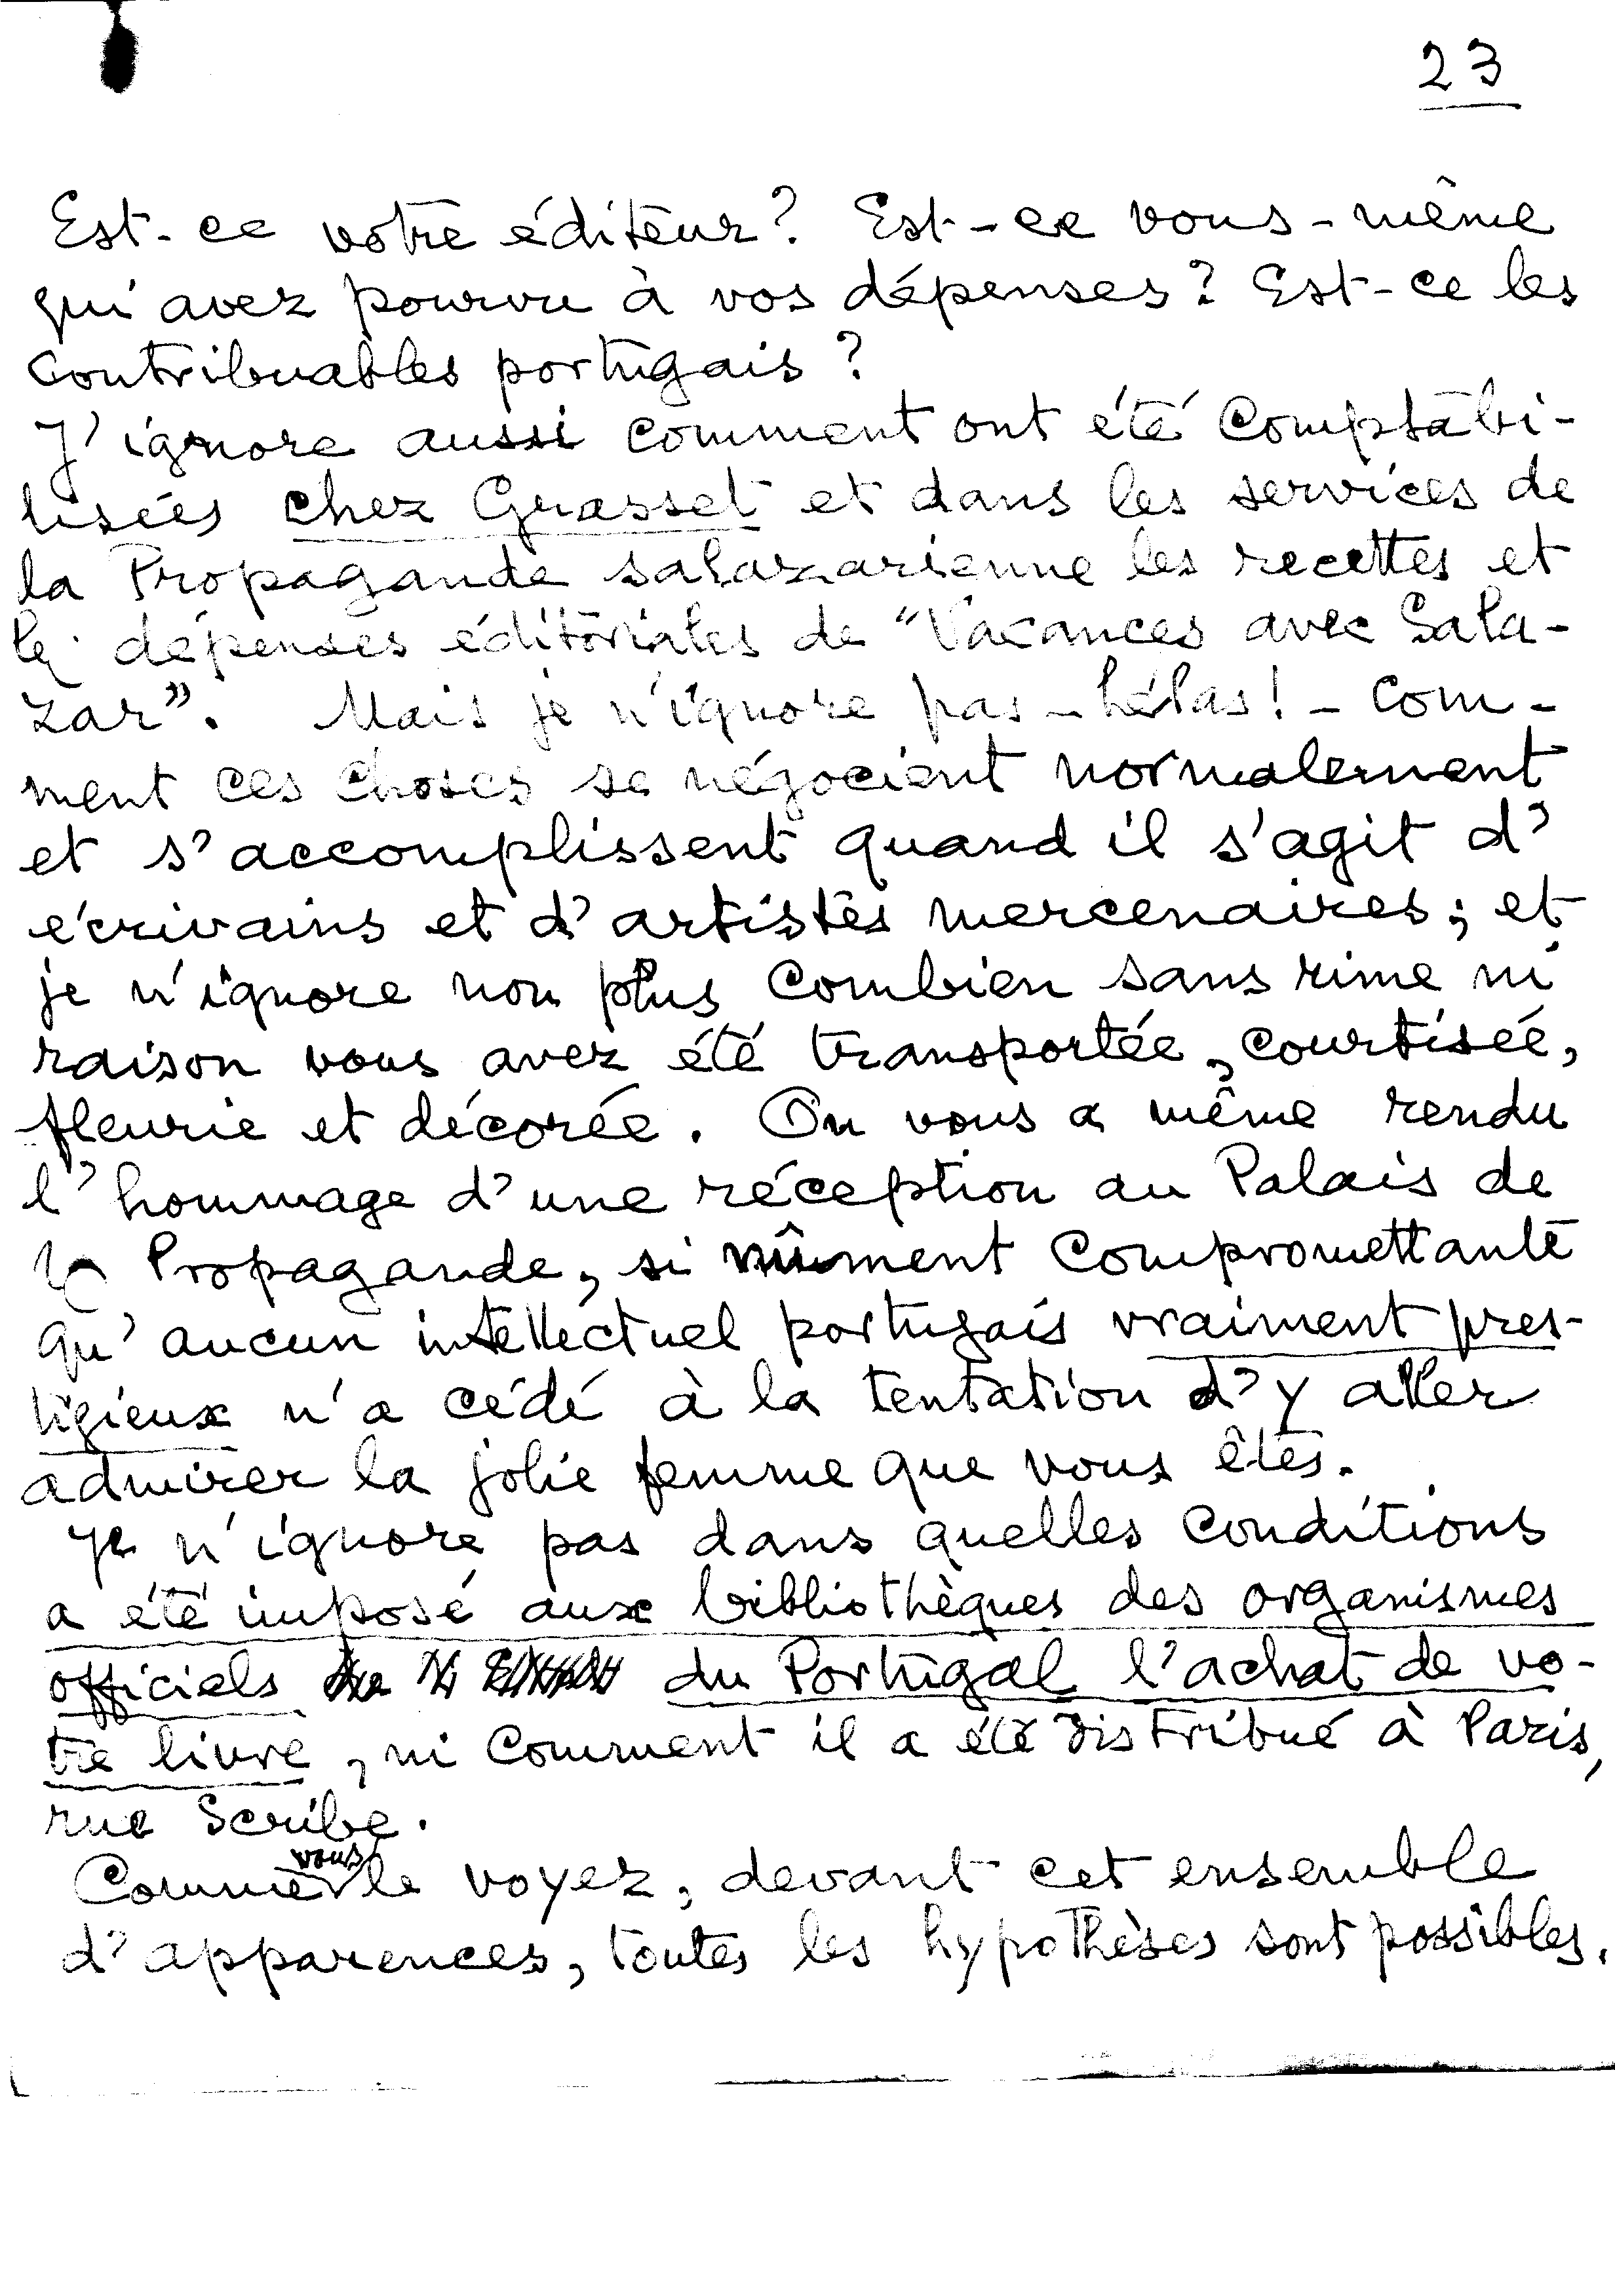 23
Est-ce votre éditeur? Est-ce vous-même
qui avez pourvu à vos dépenses? Est-ce les
contribuables portugais?
J'ignore aussi comment ont été comptabi-
lisées chez Grasset et dans les services de
la Propagande salazarienne les recettes et
les dépenses éditoriales de "Vacances avec Sala-
zar". Mais je n'ignore pas - hélas! - com-
ment ces choses se négocient normalement
et s'accomplissent quand il s'agit d'
écrivains et d'artistes mercenaires; et
je n'ignore non plus combien sans rime ni
raison vous avez été transportée, courtisée,
fleurie et décorée. On vous a même rendu
l'hommage d'une réception au Palais de
la Propagande, si nûment compromettante
qu'aucun intellectuel portugais vraiment pres-
tigieux n'a cédé à la tentation d'y aller
admirer la jolie femme que vous êtes.
Je n'ignore pas dans quelles conditions
a été imposé aux bibliothèques des organismes
officiels du Portugal l'achat de vo-
tre livre, ni comment il a été distribué à Paris,
rue Scribe.
Comme vous le voyez, devant cet ensemble
d'apparences, toutes les hypothèses sont possibles.